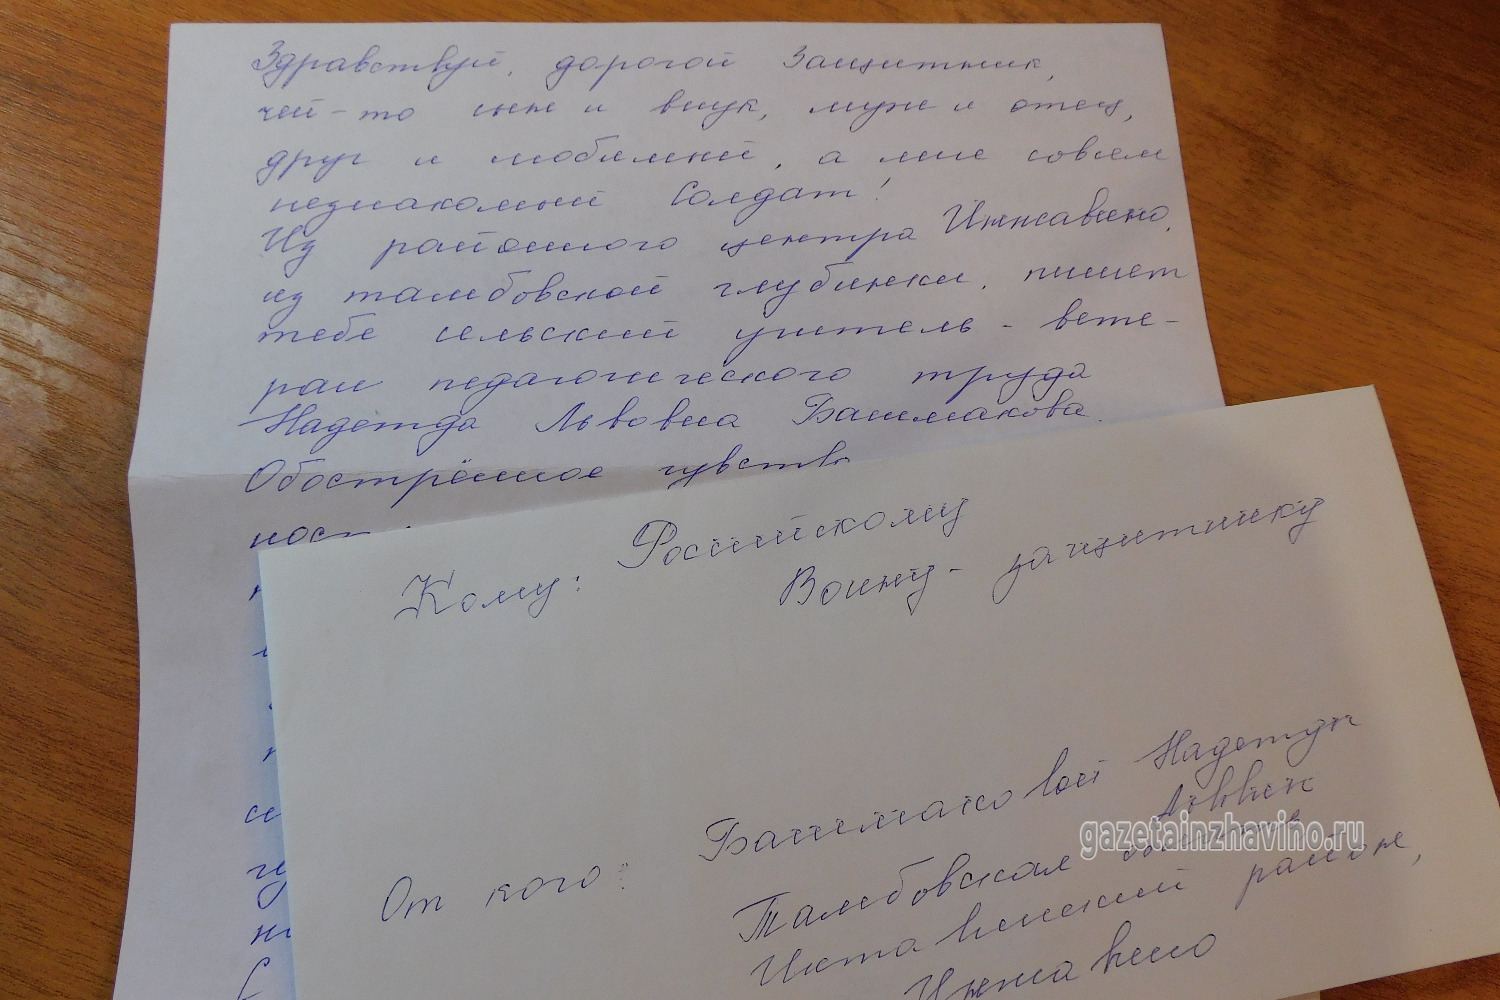 Здравствуй, дорогой Защитник,
чей-то сын и внук, муж и отец,
друг и любимый, а мне совсем
незнакомый Солдат!
Из районного центра Инжавино,
из тамбовской глубинки, пишет
тебе сельский учитель - вете-
ран педагогического труда
Надежда Львовна Башмакова.
Обострённое чувство
ност
Кому: Российскому
Воину - защитнику
От кого: Башмаковой Надежды
Львовны
Тамбовская область
Инжавинский район,
Инжавино
gazetainzhavino.ru